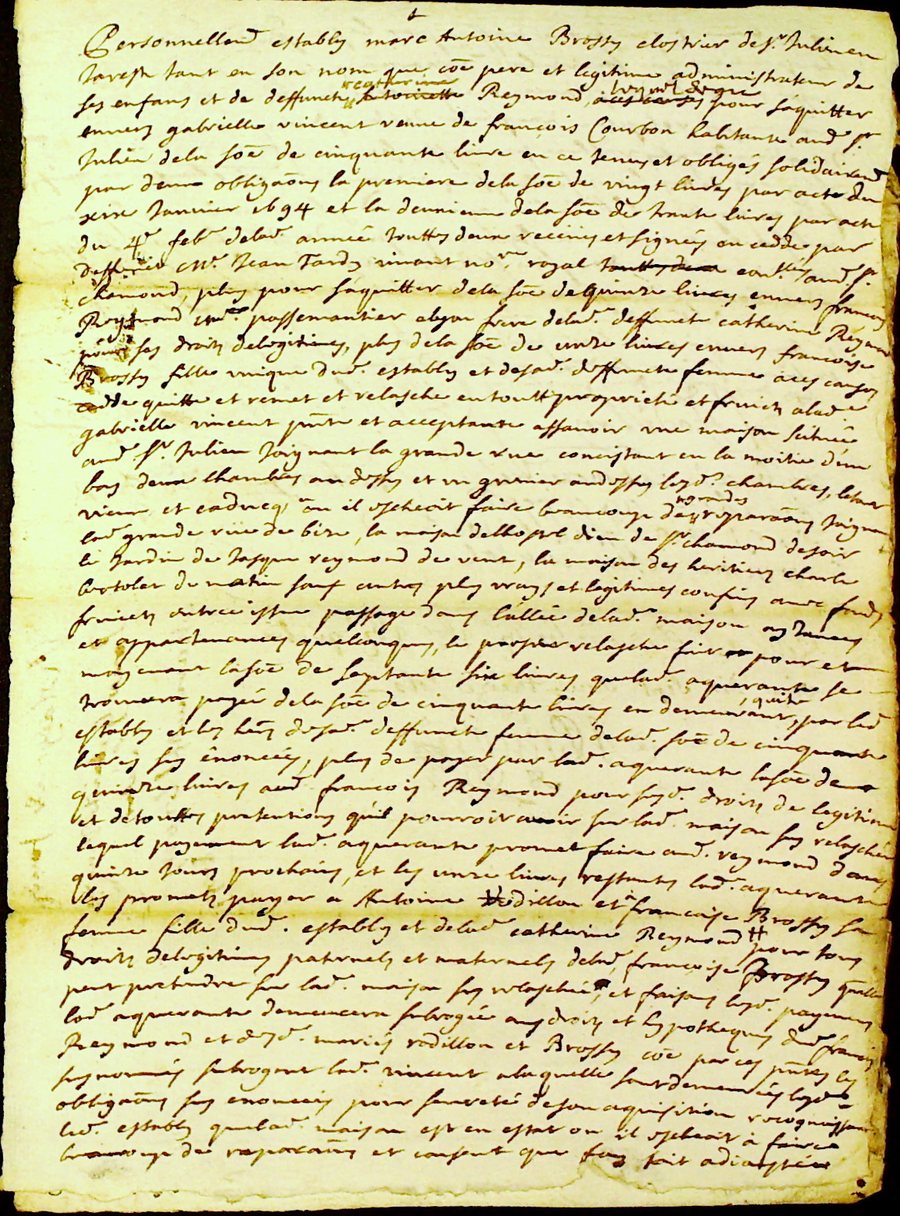 Personnellem.t establÿ marc Antoine Brossÿ clostrier de S.t Julien en
Jarestz tant en son nom que cõe pere et legitime administrateur de
ses enfans et de deffuncte catherine Reymond, lequel de gre pour saquitter
envers gabrielle vincent veuve de françois Courbon habitante aud. S.t
Julien dela sõe de cinquante livre en ce tenus et obligés solidairem.t
par deux obligãons la premiere dela sõe de vingt livres par acte du
xix Janvier 1694 et la deuxieme dela sõe de trante livres par acte
du 4.e feb.r delad. année touttes deux receues et signées en cedde par
deffunct M.e Jean Tardÿ vivant no.re royal aud. S.t
chamond, plus pour saquitter dela sõe de quinze livres envers françois
Reymond m.re passemantier a lyon frere delad. deffuncte catherine Reymond
pour ses droits delegitimes, plus dela sõe de unze livres envers françoise
Brossÿ fille unique dud. establÿ et desad. deffuncte femme a ces causes
cedde quitte et remet et relasche en toutte proprieté et fruicts a lad.
gabrielle vincent p̃nte et acceptante assavoir une maison scituée
aud. S.t Julien Joignant la grande rue concistant en la moitié d'un
bas deux chambres au dessus et un grenier au dessus lesd. chambres, letout
vieux et caducq, ou il escheoit faire beaucoup de grandes reparãons Joignant
lad. grande rüe de bize, la maison delhostel dieu de S.t chamond de soir
le Jardin de Jasque reymond de vent, la maison des heritiers charle
bertolet de matin sauf autres plus vrays et legitimes confins avec fonds
fruicts entrée issue passage dans l'allée delad. maison aysances
et appartenances quelconques, le relasche fait pour et
moyenant lasõe de septante six livres quelad. aquerante se
trouvera payée dela sõe de cinquante livres en demeurant quitte, par led.
establÿ et les hers desad. deffuncte femme delad. sõe de cinquante
livres sus énoncées, plus de payer par lad. aquerante lasõe de
quinze livres aud. françois Reymond pour susd. droits de legitime
et de touttes pretentions qu'il pourroit avoir sur lad. maison sus relaschée
lequel payement lad. aquerante promet faire aud. reymond dans
quinze Jours prochains, et les unze livres restantes lad. aquerante
les promet payer a Antoine Vedillon et françoise Brossÿ sa
femme fille dud. establÿ et delad. catherine Reymond # pour tous
droits delegitimes paternels et maternels delad. françoise Brossÿ quelle
peut pretendre sur lad. maison sus relaschée, et faisant lesd. payements
lad. aquerante demeurera subrogée aux droits et hypotheques dud. françois
Reymond et desd. mariés vedillon et Brossÿ cõe par ces p̃ntes les
susnommés subrogent lad. vincent a laquelle sont demeurées lesd.
obligãons sus enoncées pour seureté deson aquisition recognoissant
led. establÿ quelad. maison est en estat ou il escheoit a faire
beaucoup de reparãons et consent que soit